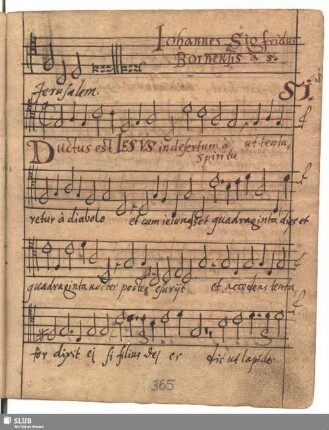 Johannes Sigfridus
Bornensis a 5.
Jerusalem.
51.
Ductus est IESVS in desertum à Spiritu ut tenta,
retur à diabolo et cum ieiunasset quadraginta dies et
quadraginta noctes postea esurijt et accedens tenta
tor dixit ei si filius dei es dic ut lapides
365
SLUB
Wir führen Wissen.